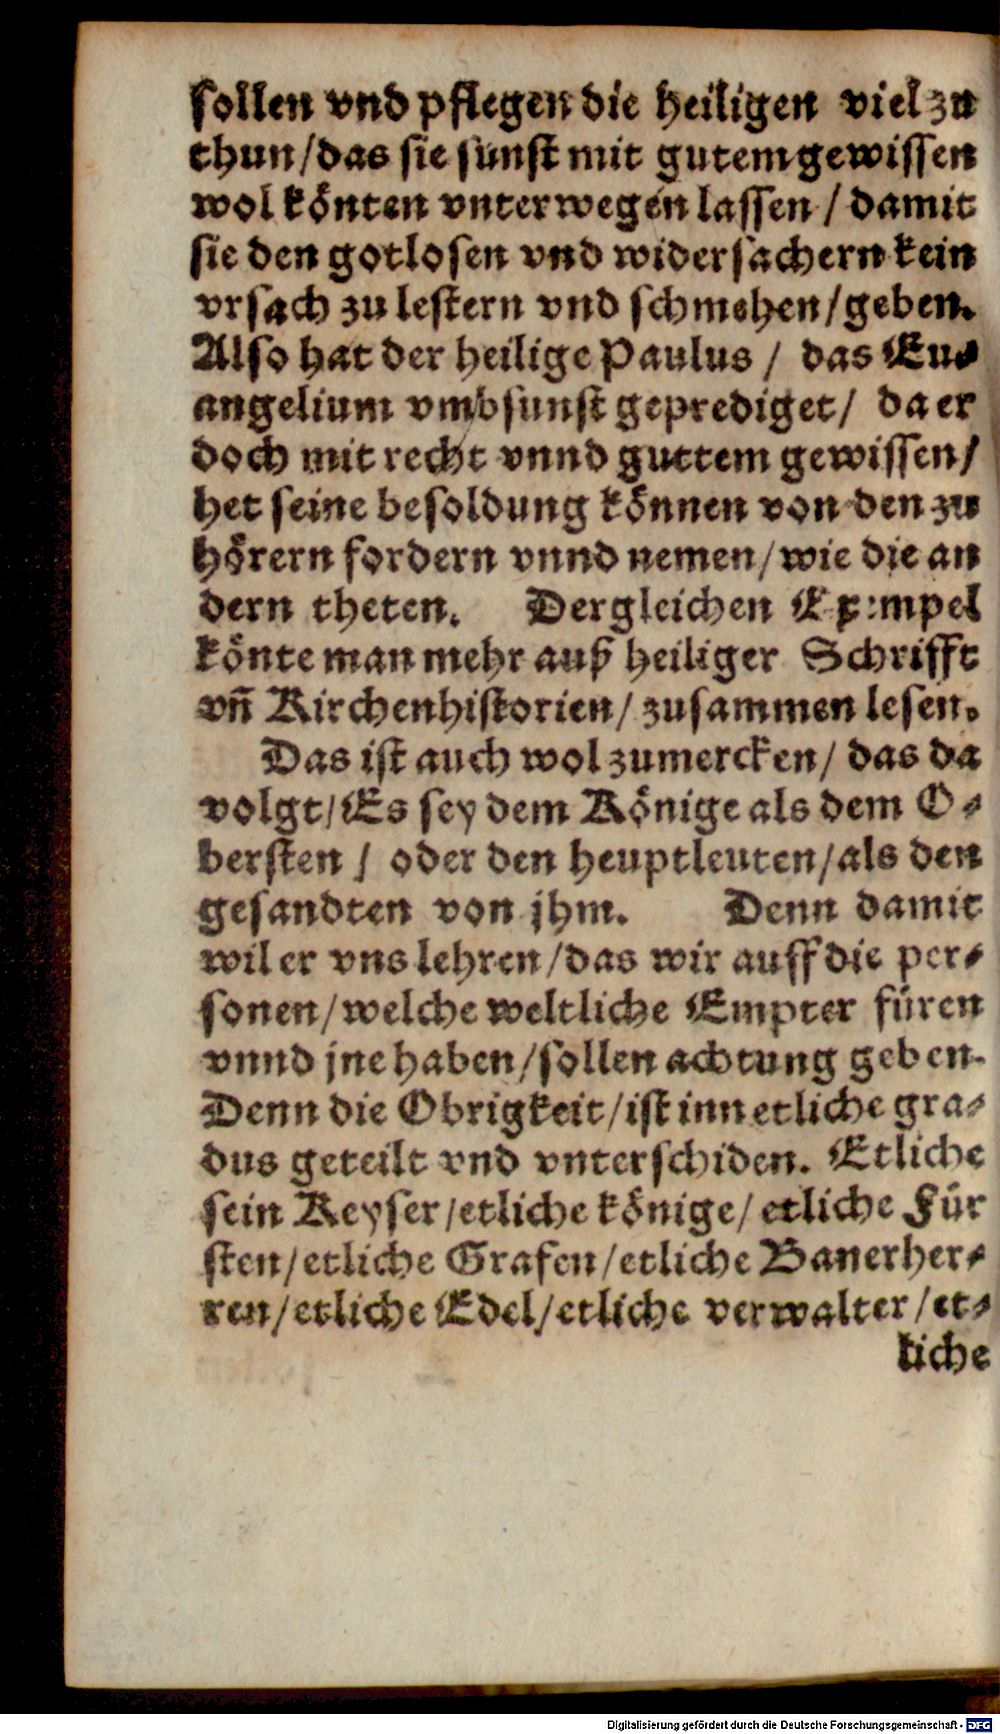 sollen vnd pflegen die heiligen viel zu
thun/das sie sunst mit gutem gewissen
wol könten vnterwegen lassen / damit
sie den gotlosen vnd widersachern kein
vrsach zu lestern vnd schmehen/geben.
Also hat der heilige Paulus / das Eu⸗
angelium vmbsunst geprediget/ da er
doch mit recht vnnd guttem gewissen/
het seine besoldung können von den zu
hörern fordern vnnd nemen/wie die an
dern theten. Dergleichen Exempel
könte man mehr auß heiliger Schrifft
vn̄ Kirchenhistorien/ zusammen lesen.
Das ist auch wol zumercken/ das da
volgt/Es sey dem Könige als dem O⸗
bersten / oder den heuptleuten/als den
gesandten von jhm. Denn damit
wil er vns lehren/das wir auff die per⸗
sonen/welche weltliche Empter füren
vnnd jne haben/sollen achtung geben.
Denn die Obrigkeit/ist inn etliche gra⸗
dus geteilt vnd vnterschiden. Etliche
sein Keyser/etliche könige/ etliche Für
sten/etliche Grafen/etliche Banerher⸗
ren/etliche Edel/etliche verwalter/et⸗
liche
Digitalisierung gefördert durch die Deutsche Forschungsgemeinschaft - DFG